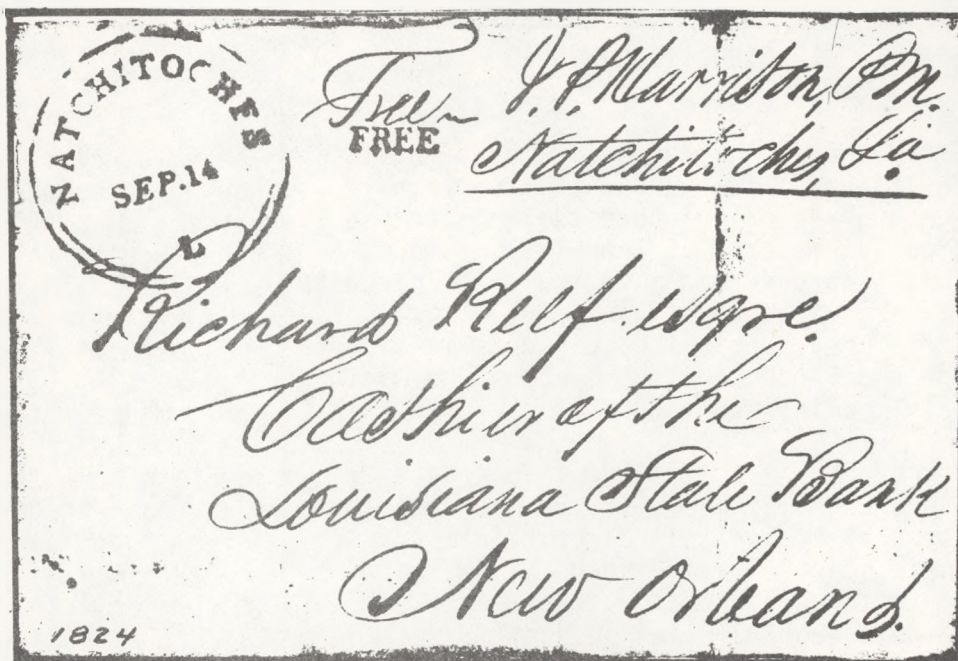 NATCHITOCHES
SEP. 14
L
Free
FREE
J. P. Harrison, P.M.
Natchitoches, La
Richard Relf. esqre.
Cashier of the
Louisiana State Bank
New Orleans.
1824